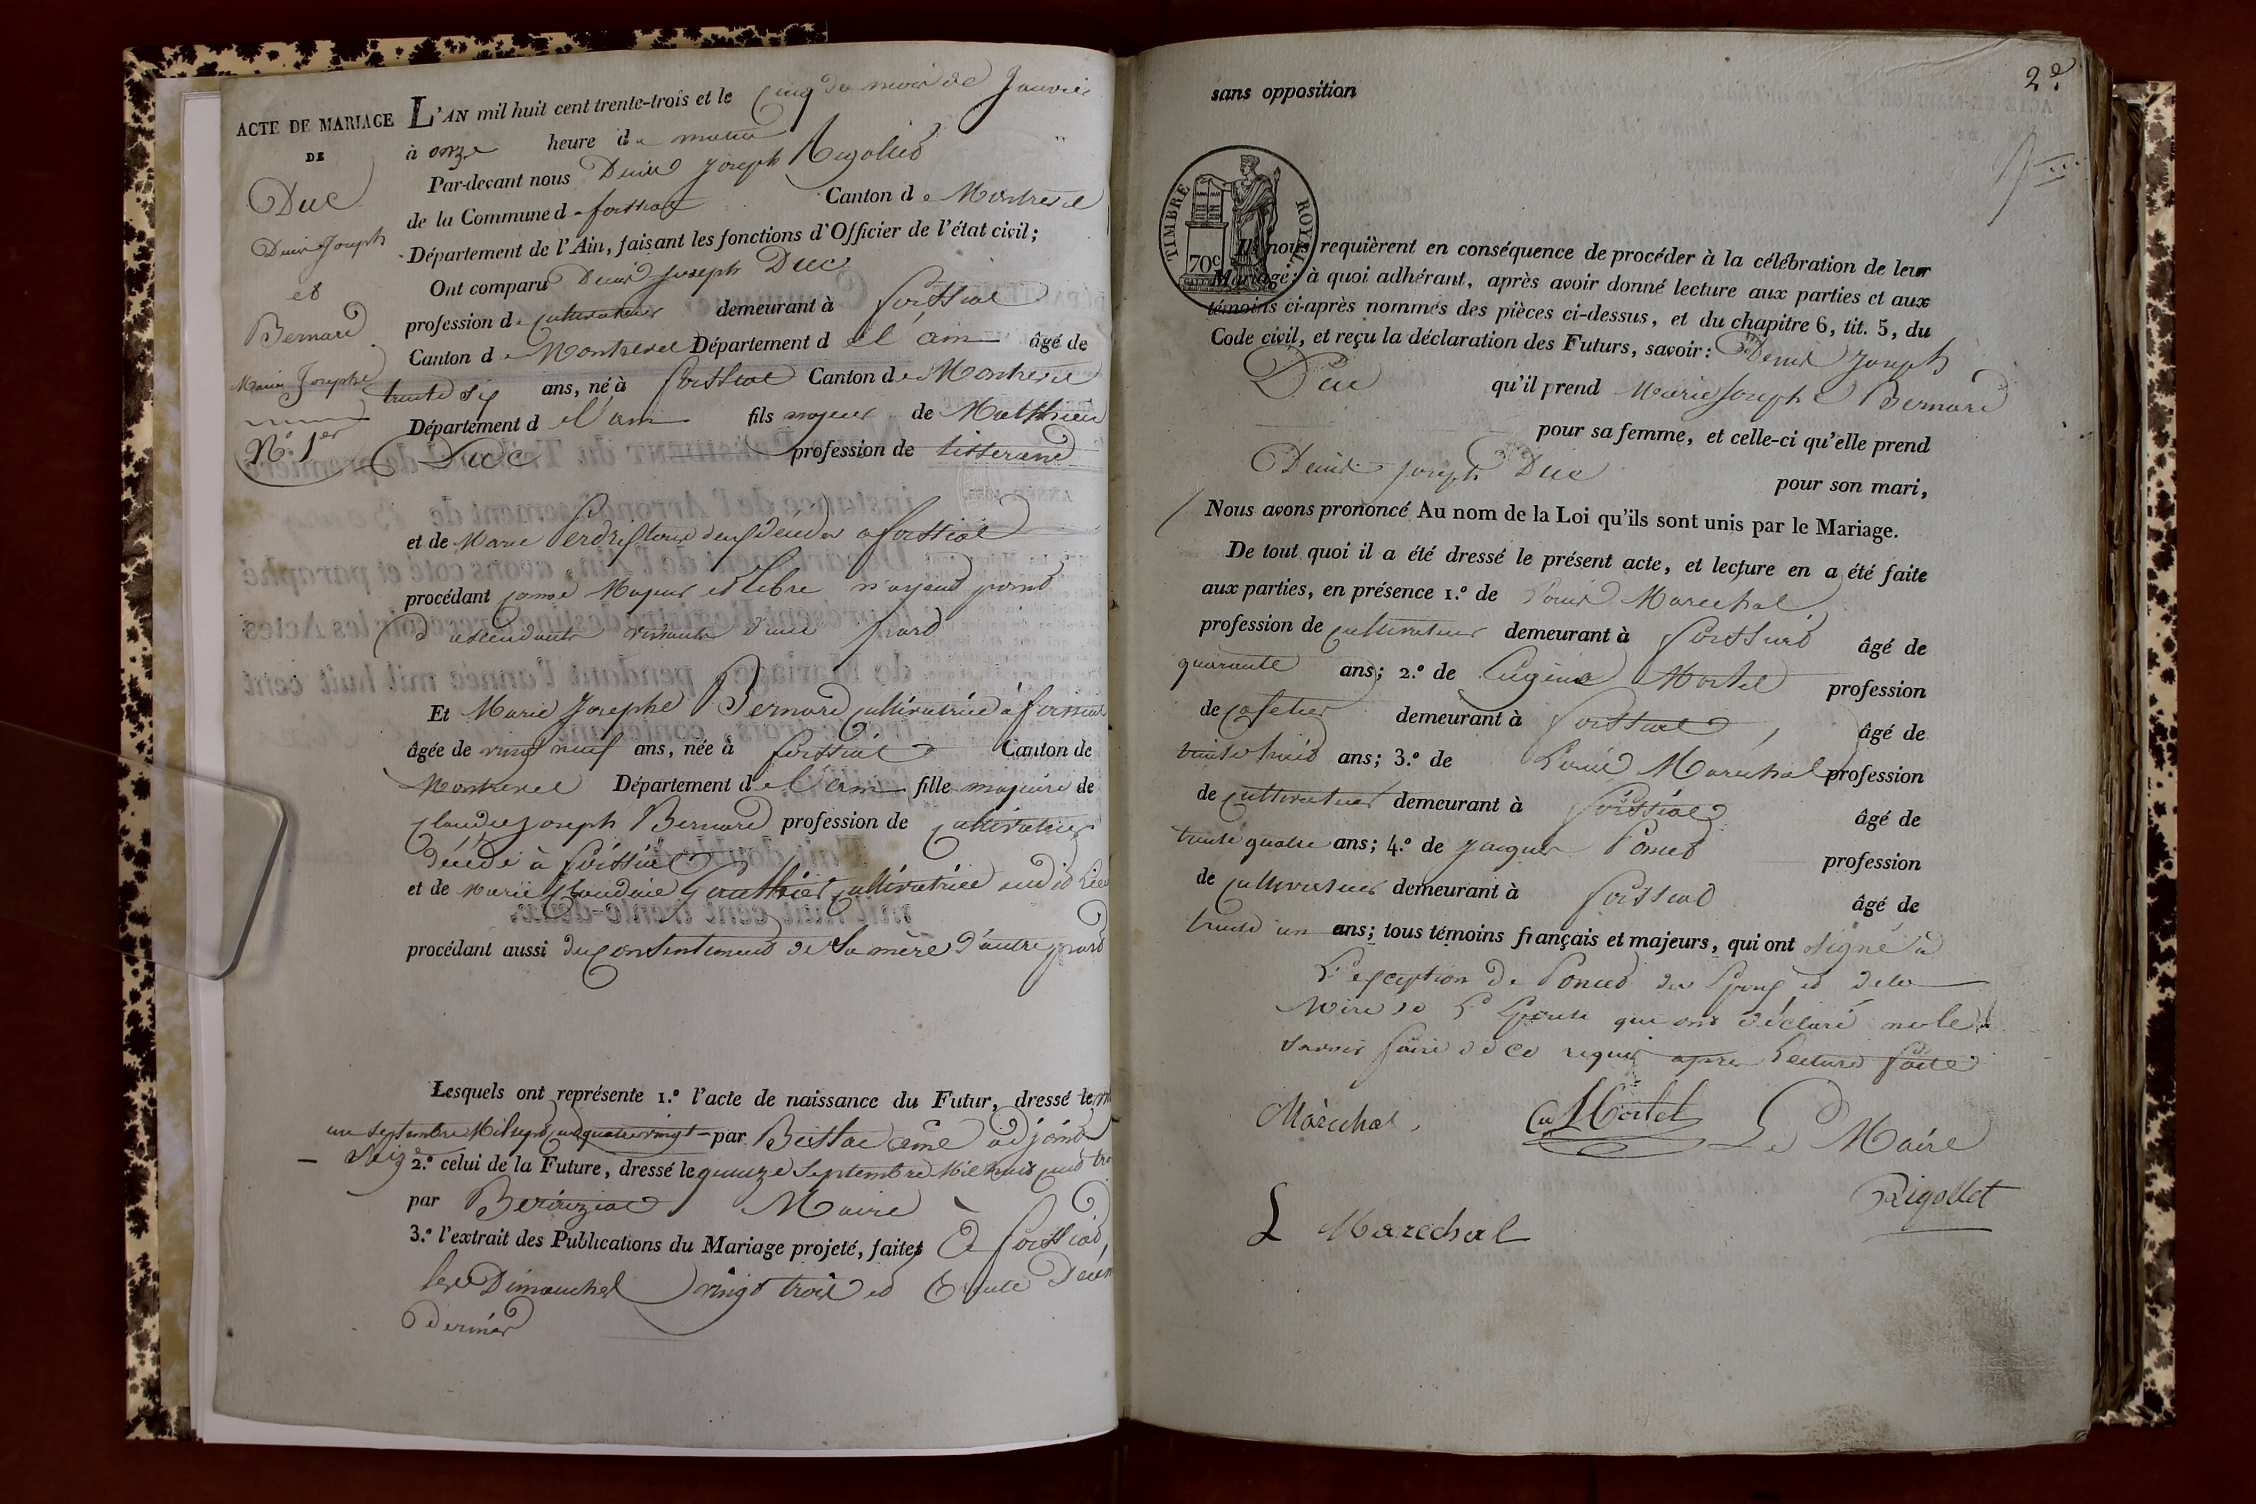 ACTE DE MARIAGE
DE
Duc
Denis Joseph
et
Bernard
Marie Josephe
N.º 1er
L'AN mil huit cent trente-trois et le cinq du mois de Janvier
à onze heure de matin
Par-devant nous Denis Joseph Rigollet
de la Commune de foissiat Canton de Montrevel
Département de l'Ain, faisant les fonctions d'Officier de l'état civil;
Ont comparu Denis Joseph Duc
profession de cultivateur demeurant à foissiat
Canton de Montrevel Département de l'ain âgé de
trente six ans, né à foissiat Canton de Montrevel
Département de l'ain fils majeur de Matthieu
Duc profession de tisserand
et de Marie tous deux a foissiat
procédant comme Majeur et libre n'ayant point
d'ascendants vivants d'une part
Et Marie Josephe Bernard cultivatrice à foissiat
âgée de vingt neuf ans, née à foissiat Canton de
Montrevel Département de l'ain fille majeure de
Claude Joseph Bernard profession de cultivateur
décédé à foissiat
et de Marie Claudine Gauthier cultivatrice audit lieu
procédant aussi du consentement de Sa mère d'autre part
Lesquels ont représente 1.º l'acte de naissance du Futur, dressé le
un septembre Mil sept cent quatre vingt par Beissac aîné adjoint
– Seize 2.º celui de la Future, dressé le quinze Septembre Mil huit cent
par Maire
3.º l'extrait des Publications du Mariage projeté, faites à foissiat,
les Dimanches vingt trois et trente
dernier
2.e
sans opposition
TIMBRE ROYAL
70c
Ils nous requièrent en conséquence de procéder à la célébration de leur
Mariage: à quoi adhérant, après avoir donné lecture aux parties et aux
témoins ci-après nommés des pièces ci-dessus, et du chapitre 6, tit. 5, du
Code civil, et reçu la déclaration des Futurs, savoir: Denis Joseph
Duc qu'il prend Marie Josephe Bernard
pour sa femme, et celle-ci qu'elle prend
Denis Joseph Duc pour son mari,
Nous avons prononcé Au nom de la Loi qu'ils sont unis par le Mariage.
De tout quoi il a été dressé le présent acte, et lecture en a été faite
aux parties, en présence 1.º de Louis Marechal
profession de cultivateur demeurant à foissiat âgé de
quarante ans; 2.º de Eugène Mortel profession
de cafetier demeurant à foissiat, âgé de
trente huit ans; 3.º de Louis Marechal profession
de cultivateur demeurant à foissiat âgé de
trente quatre ans; 4.º de Jacques Poncet profession
de cultivateur demeurant à foissiat âgé de
trente un ans; tous témoins français et majeurs, qui ont signé à
L'exception de Poncet de L'epoux et de la
Mère et L'Epouse qui ont déclaré ne le
savoir faire de ce requis apres Lecture faite
Marechal, Mortel Le Maire
Rigollet
L Marechal